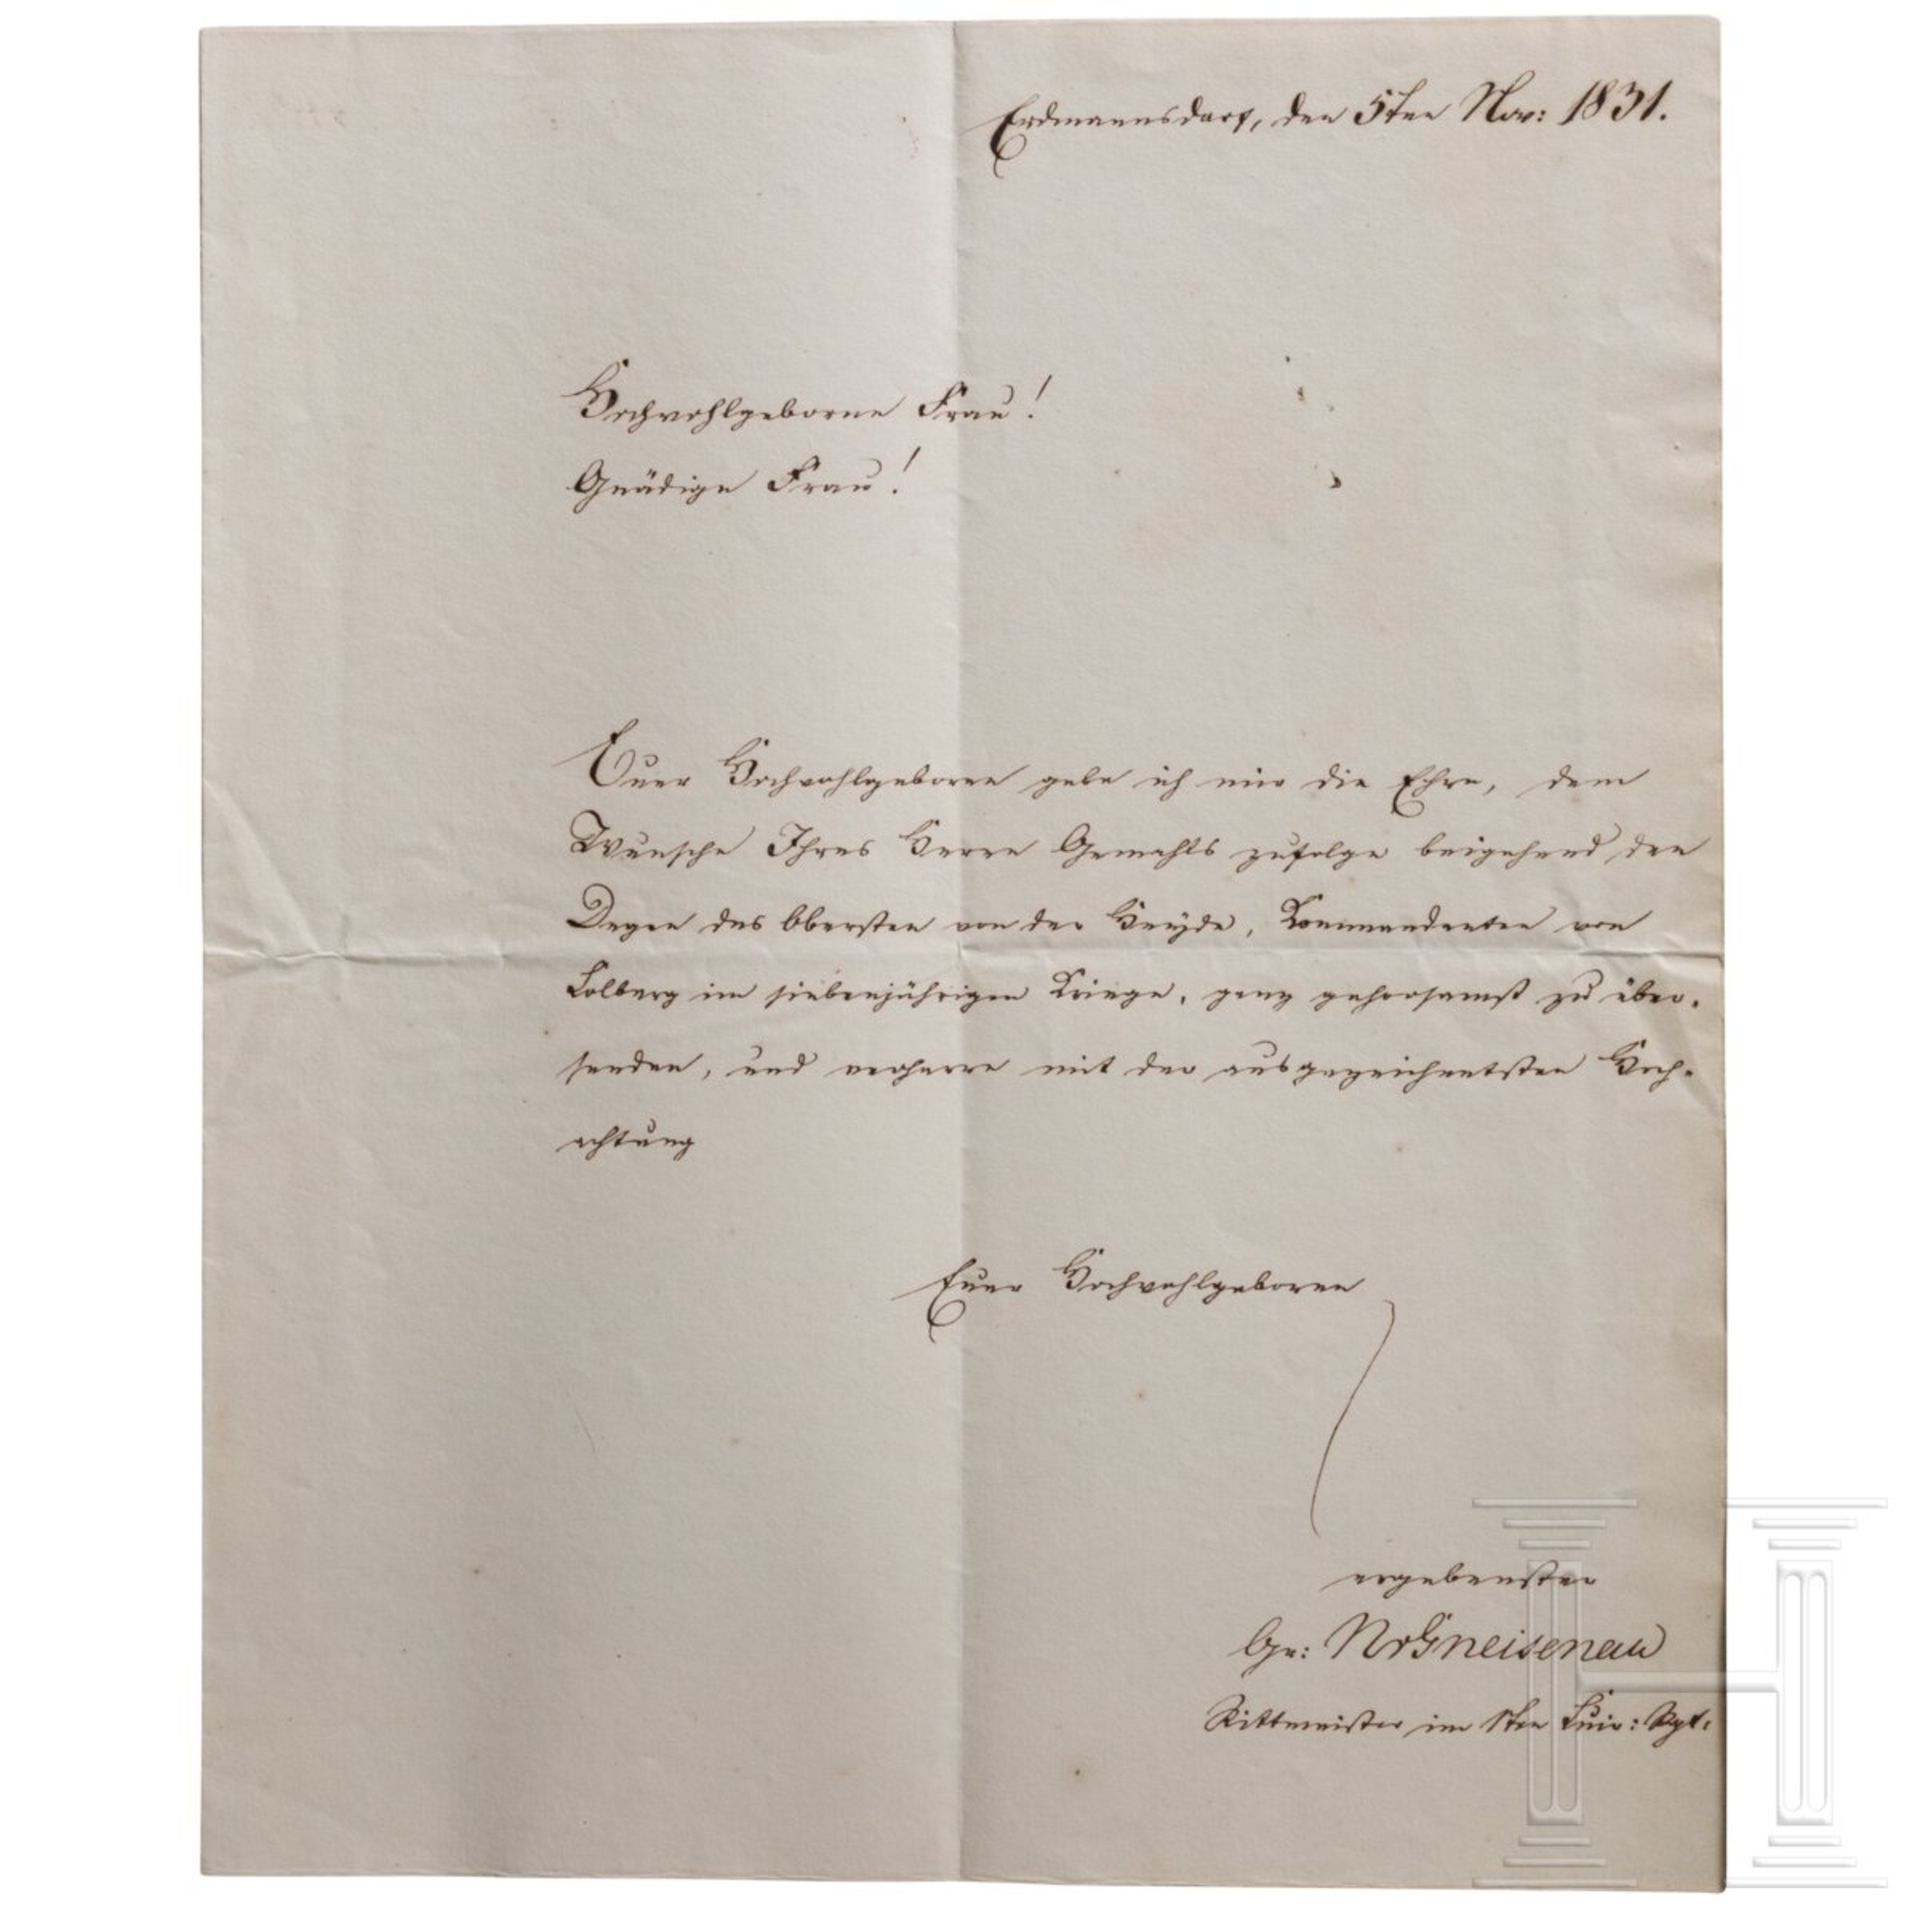 Erdmannsdorf, den 5ten Nov: 1831.
Hochwohlgeborne Frau!
Gnädige Frau!
Euer Hochwohlgeboren gebe ich mir die Ehre, dem
Wunsche Ihres Herrn Gemahls zufolge beigehend den
Degen des Obersten von der Heyde, Kommandanten von
Colberg im siebenjährigen Kriege, ganz gehorsamst zu über-
senden, und verharre mit der ausgezeichnetsten Hoch-
achtung
Euer Hochwohlgeboren
ergebenster
Gr: NvGneisenau
Rittmeister im 1ten Cuir: Rgt: